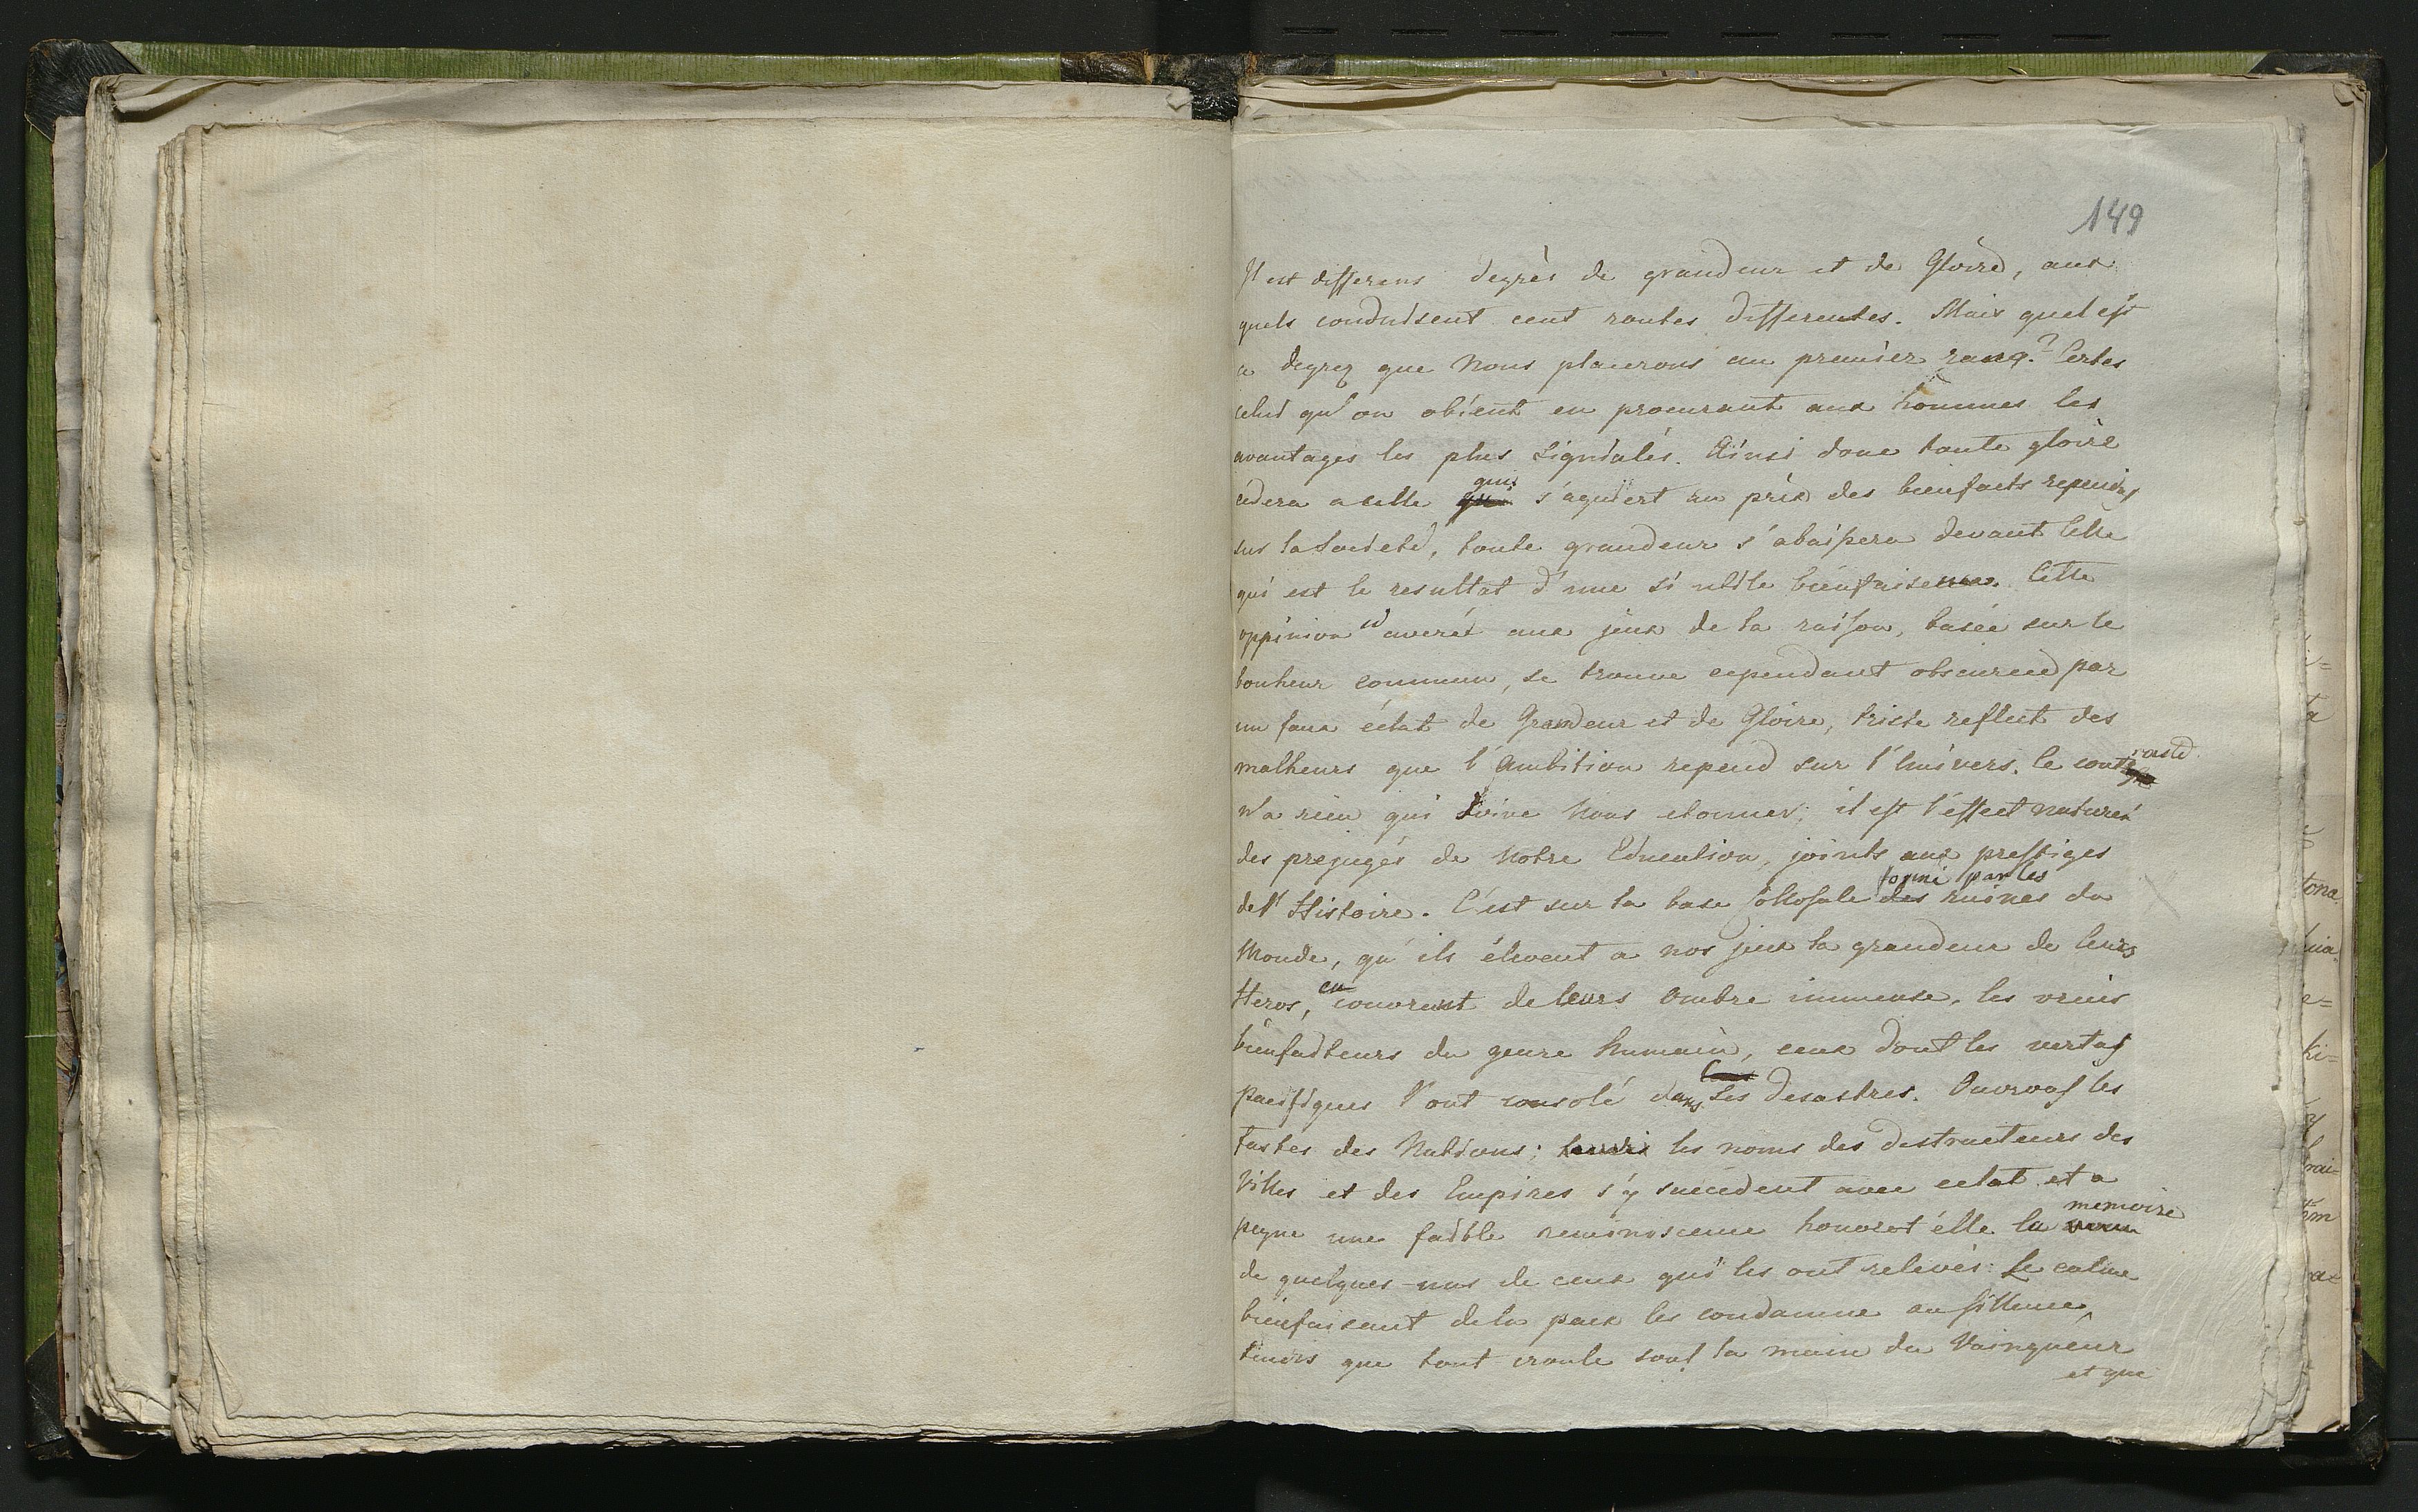 149
Il est differens degrès de grandeur et de Gloire, aux
quels conduisent cent routes differentes. Mais quel est
ce degrez que Nous placerons au premier rang? Certes
celui qu'on obtient en procurant aux hommes les
avantages les plus signialés. Ainsi donc toute gloire
cedera a celle qui s'aquiert au prix des bienfaits rependus
sur la Societé, toute grandeur s'abaissera devant Celle
qui est le resultat d'une si utile bienfaisence. Cette
oppinion si averéé aux jeux de la raison, basée sur le
bonheur commun, se trouve cependant obscurcie par
un faux éclat de Grandeur et de Gloire, triste reflect des
malheurs que l'Ambition repend sur l'Univers. Ce contraste
n'a rien qui doive Nous etonner; il est l'effect naturel
des prejugés de Notre Education, joints aux prestiges
de l'Histoire. C'est sur la base Collosale formé par les ruines du
Monde, qu'ils élevent a nos jeux la grandeur de leurs
Heros, en couvrent de leurs Ombre immense, les vrais
bienfaiteurs du genre humain, ceux dont les vertus
pacifiques l'ont consolé dans Ses desastres. Ouvrons les
Fastes des Nations; les noms des destructeurs des
Villes et des Empires s'y succedent avec eclat et a
peyne une faible reminiscence honoret'élle la memoire
de quelques-uns de ceux qui les ont relevés. Le calme
bienfaisant de la paix les condamne au sillence,
tendis que tout croule sous la main du Vainqueur
et que